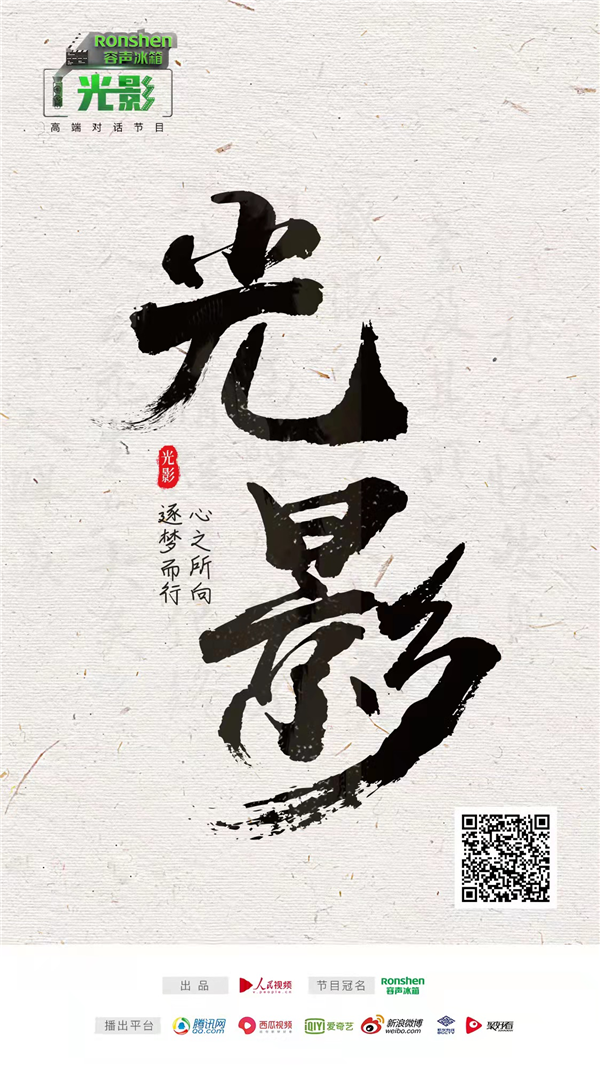 Ronshen
容声冰箱
光影
高端对话节目
光影
光影
心之所向
逐梦而行
出品
人民视频
节目冠名
Ronshen
容声冰箱
播出平台
腾讯网
QQ.com
西瓜视频
iQIYI 爱奇艺
新浪微博
weibo.com
聚好看